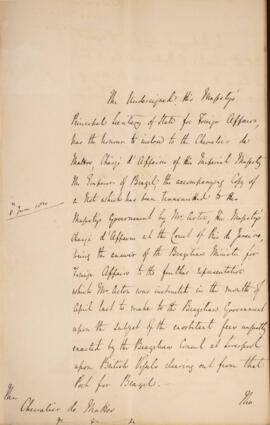 The Undersigned, His Majesty's
Principal Secretary of State for Foreign Affairs,
has the honour to inclose to the Chevalier de
Mattos, Chargé d'Affaires of His Imperial Majesty
the Emperor of Brazil, the accompanying Copy of
a Note which has been transmitted to His
Majesty's Government by Mr. Aston, His Majesty's
Chargé d'Affaires at the Court of Rio de Janeiro,
being the answer of the Brazilian Minister for
Foreign Affairs to the further representation
which Mr. Aston was instructed in the month of
April last to make to the Brazilian Government
upon the subject of the exorbitant fees unjustly
exacted by the Brazilian Consul at Liverpool
upon British Vessels clearing out from that
Port for Brazil.
The
The
Chevalier de Mattos